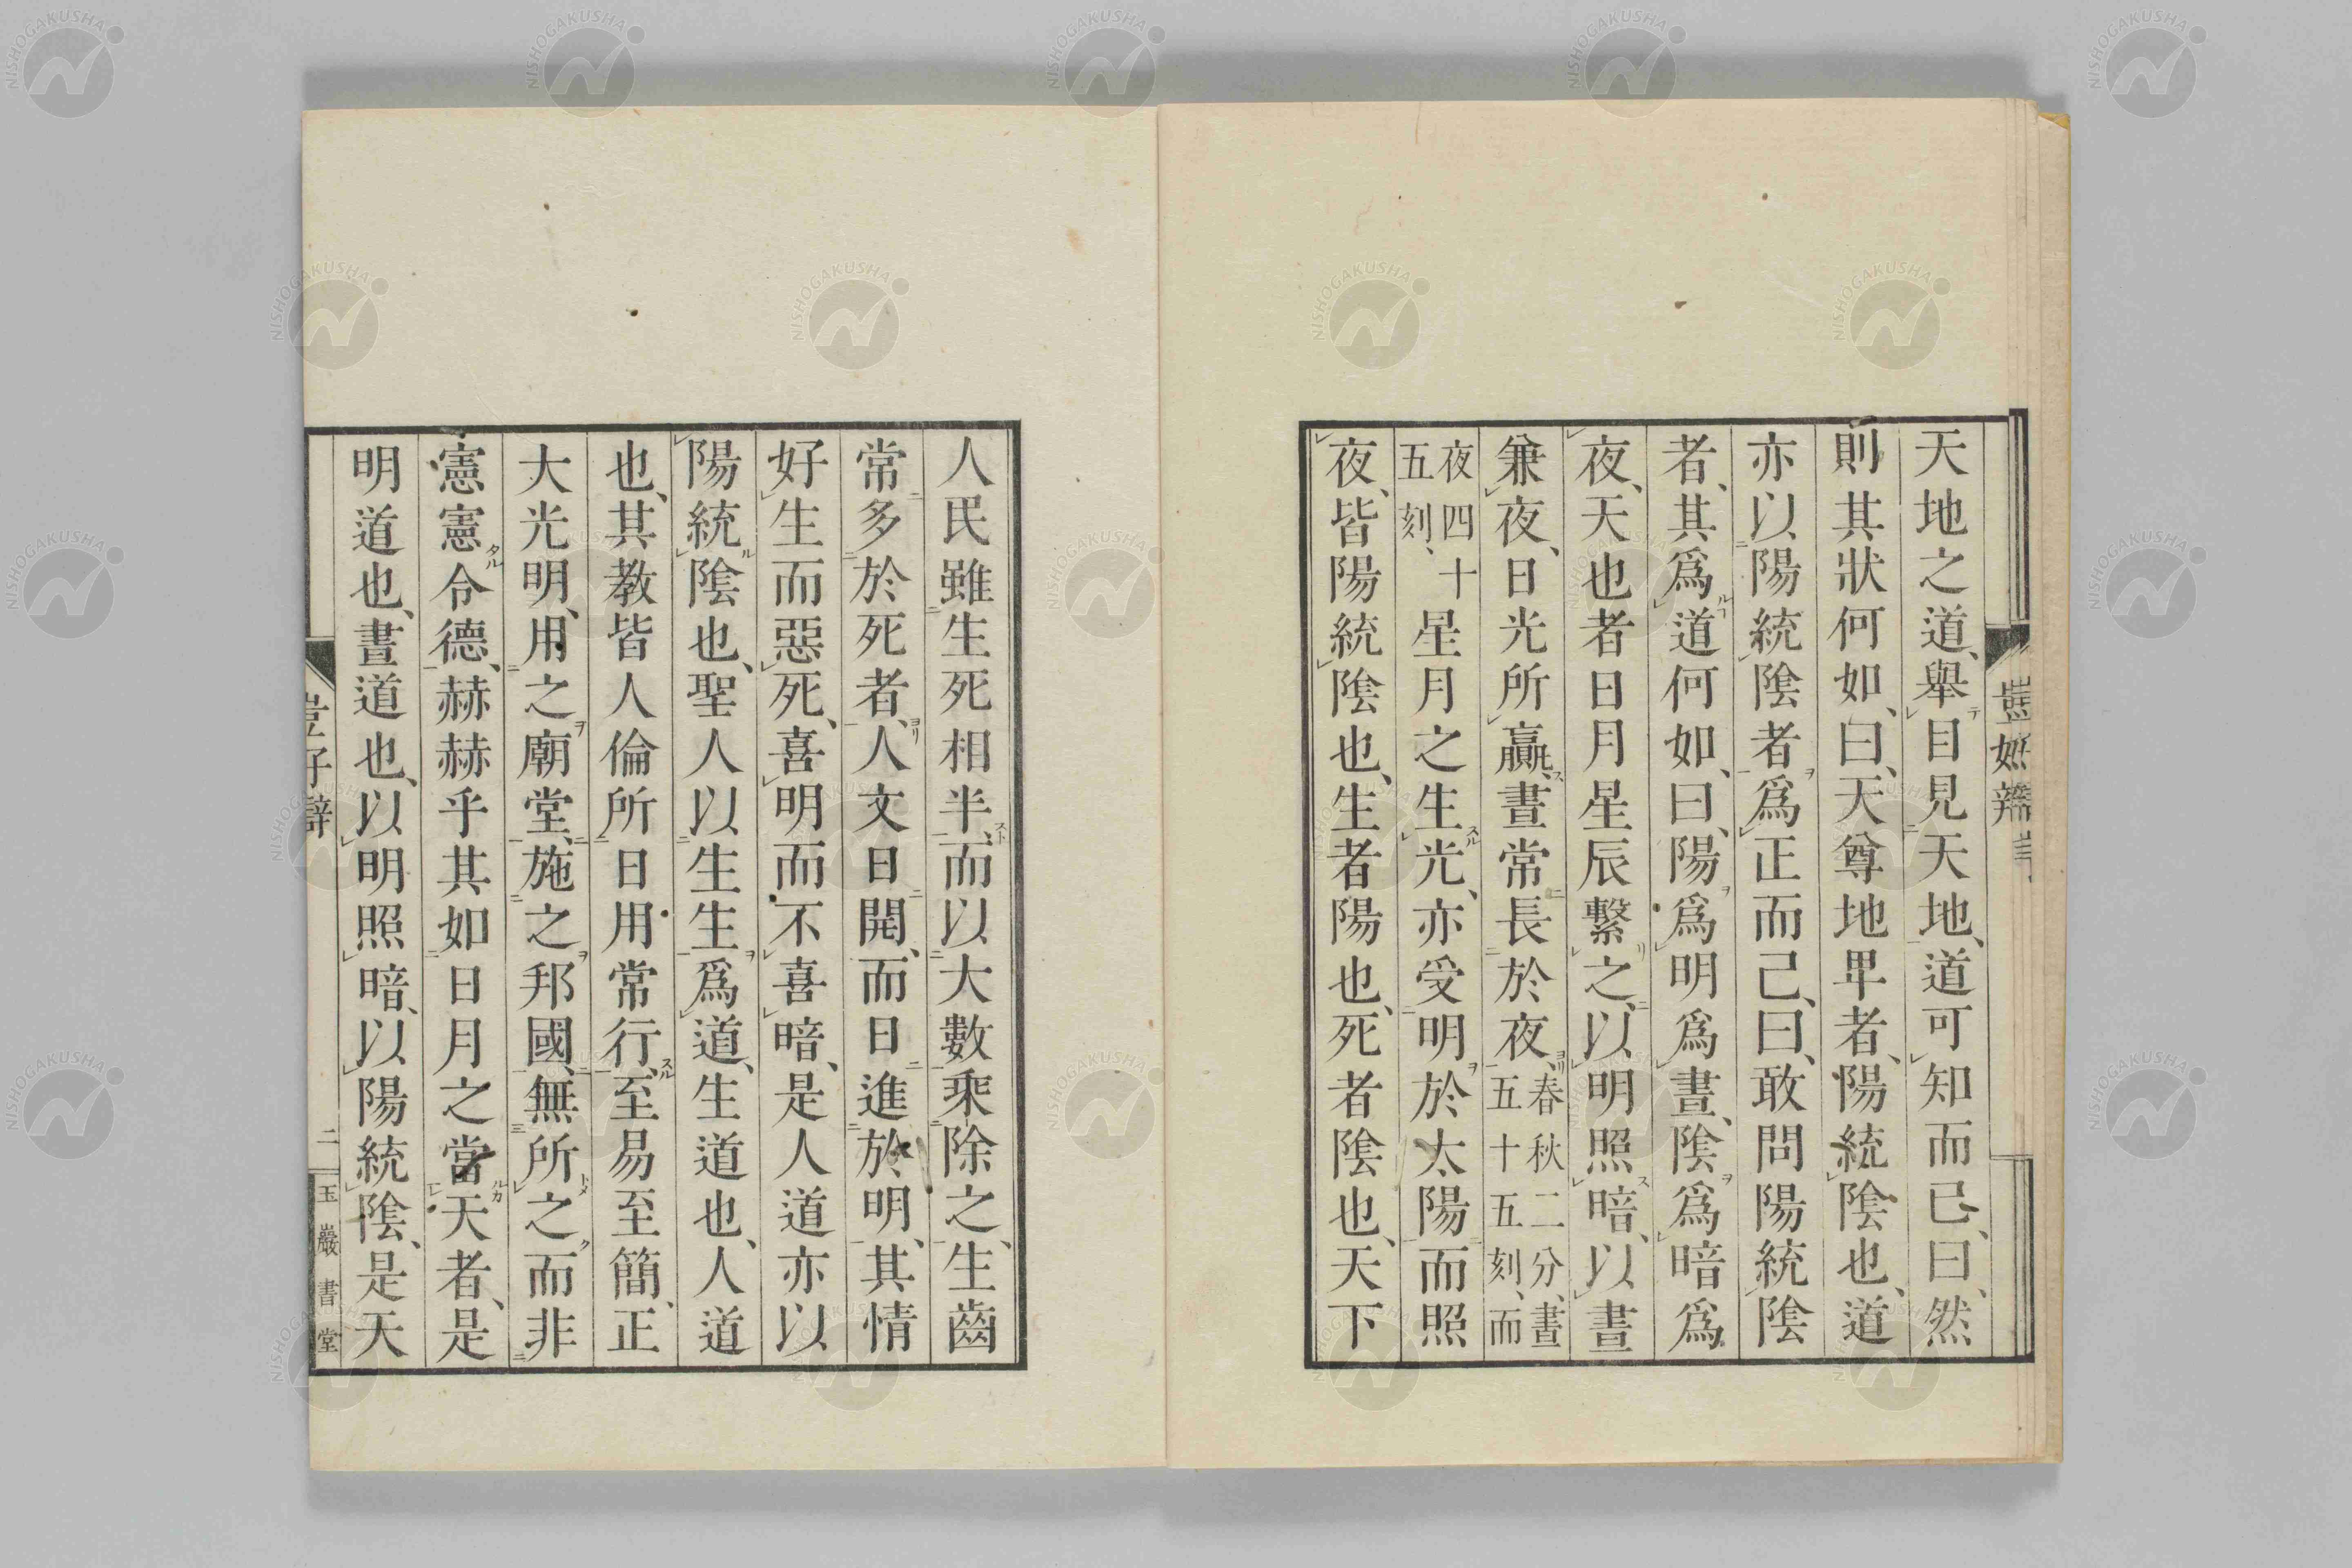 天地之道、舉目見天地、道可知而已、曰、然
則其狀何如、曰、天尊地卑者、陽統陰也、道
亦以陽統陰者爲正而已、曰、敢問陽統陰
者、其爲道何如、曰、陽爲明爲晝、陰爲暗爲
夜、天也者日月星辰繫之、以明照暗、以晝
兼夜、日光所贏、晝常長於夜、春秋二分、晝五十五刻、而
夜四十五刻、星月之生光、亦受明於太陽而照
夜、皆陽統陰也、生者陽也、死者陰也、天下
人民雖生死相半、而以大數乘除之、生齒
常多於死者、人文日開、而日進於明、其情
好生而惡死、喜明而不喜暗、是人道亦以
陽統陰也、聖人以生生爲道、生道也、人道
也、其教皆人倫所日用常行、至易至簡、正
大光明、用之廟堂、施之邦國、無所之而非
憲憲令德、赫赫乎其如日月之當天者、是
明道也、晝道也、以明照暗、以陽統陰、是天
二
玉巖書堂
NISHOGAKUSHA